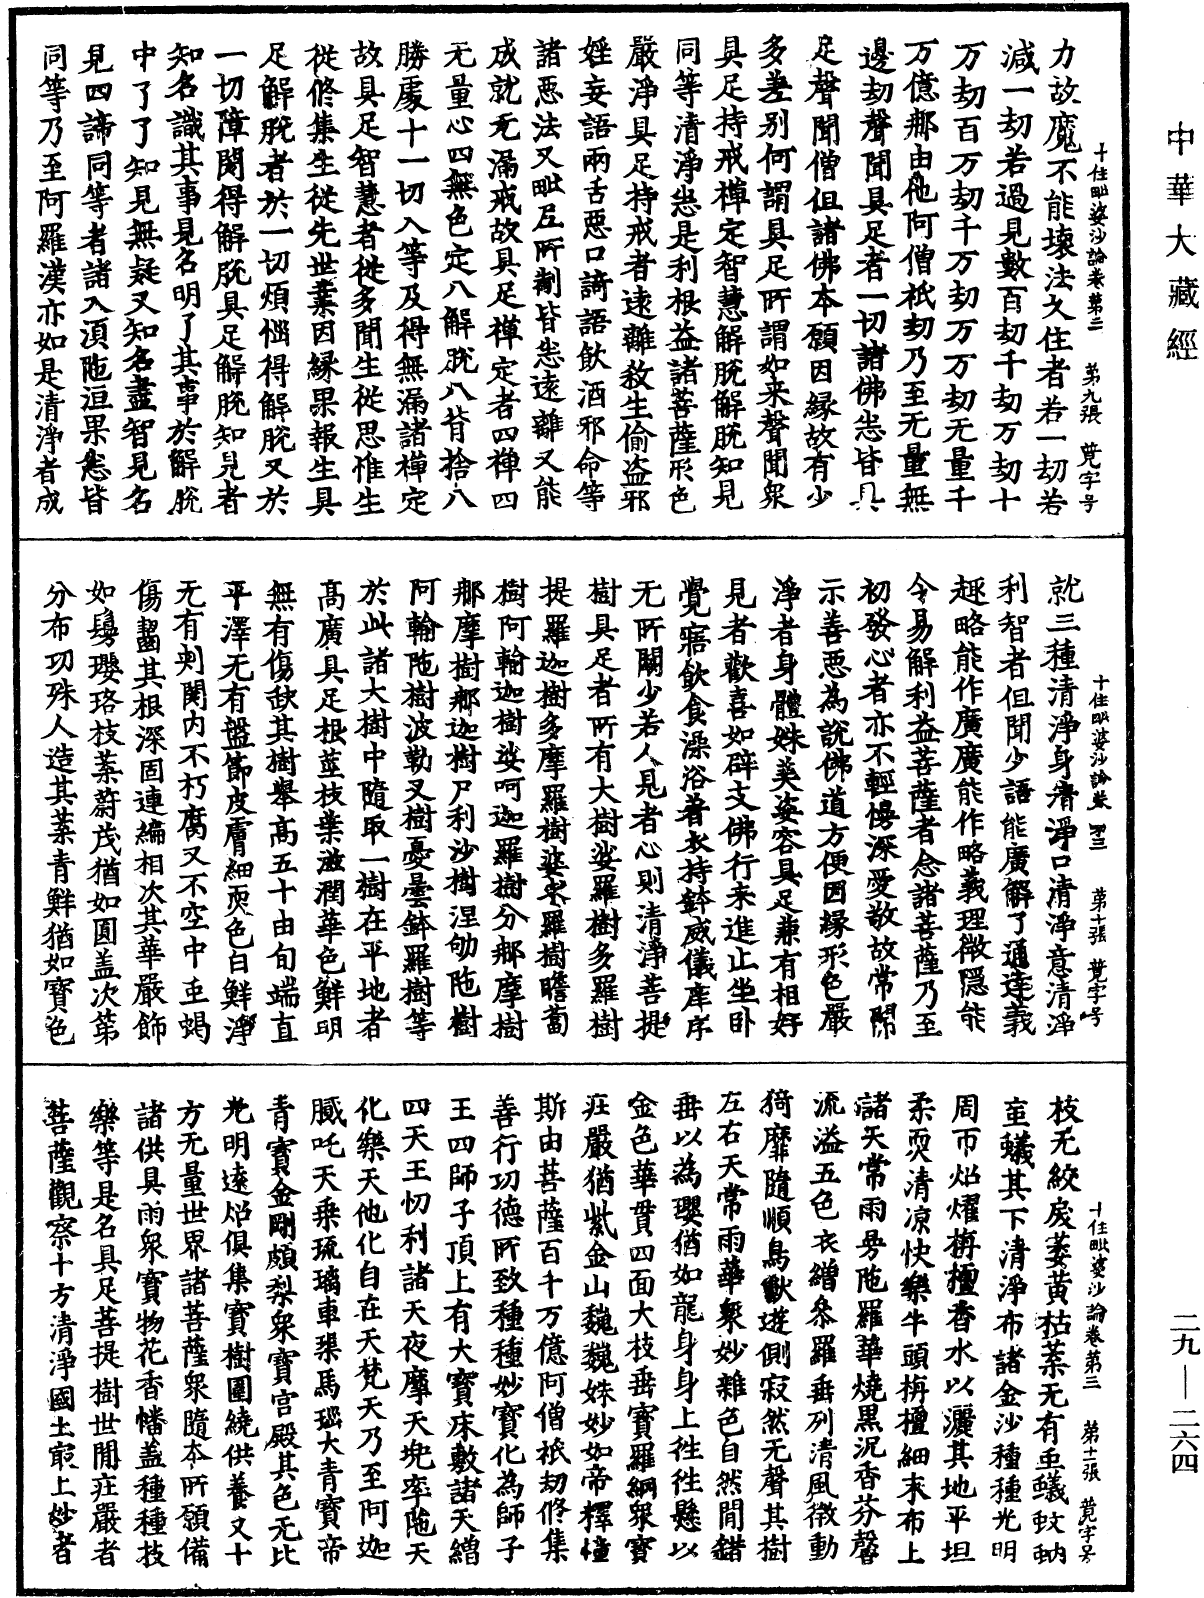 中華大藏經
十住毗婆沙論卷第三　第九張　覺字号
力故魔不能壞法久住者若一劫若
減一劫若過見數百劫千劫万劫十
万劫百万劫千万劫万万劫无量千
万億那由他阿僧祇劫乃至无量無
邊劫聲聞具足者一切諸佛悉皆具
足聲聞僧但諸佛本願因緣故有少
多差别何謂具足所謂如来聲聞衆
具足持戒禪定智慧解脫解脫知見
同等清淨悉是利根益諸菩薩形色
嚴淨具足持戒者遠離殺生偷盜邪
婬妄語兩舌惡口綺語飲酒邪命等
諸惡法又毗尼所制皆悉遠離又能
成就无漏戒故具足禪定者四禪四
无量心四無色定八解脫八背捨八
勝處十一切入等及得無漏諸禪定
故具足智慧者從多聞生從思惟生
從修集生從先世業因緣果報生具
足解脫者於一切煩惱得解脫又於
一切障閡得解脫具足解脫知見者
知名識其事見名明了其事於解脫
中了了知見無疑又知名盡智見名
見四諦同等者諸入湏陁洹果悉皆
同等乃至阿羅漢亦如是清淨者成
十住毗婆沙論卷第三　第十張　覺字号
就三種清淨身清淨口清淨意清淨
利智者但聞少語能廣解了通達義
趣略能作廣廣能作略義理微隱能
令易解利益菩薩者念諸菩薩乃至
初發心者亦不輕慢深愛敬故常開
示善惡為說佛道方便因緣形色嚴
淨者身體姝美姿容具足兼有相好
見者歡喜如辟支佛行来進止坐卧
覺寤飲食澡浴著衣持鉢威儀庠序
无所闕少若人見者心則清淨菩提
樹具足者所有大樹娑羅樹多羅樹
提羅迦樹多摩羅樹婆求羅樹瞻蔔
樹阿輸迦樹娑呵迦羅樹分那摩樹
那摩樹那迦樹尸利沙樹涅劬陁樹
阿輸陁樹波勒叉樹憂曇鉢羅樹等
於此諸大樹中隨取一樹在平地者
高廣具足根莖枝葉滋潤華色鮮明
無有傷缺其樹舉高五十由旬端直
平澤无有盤節皮膚細耎色白鮮淨
无有刺閡内不朽腐又不空中虫蝎
傷齧其根深固連編相次其華嚴飾
如鬘瓔珞枝葉蔚茂猶如圓盖次第
分布功殊人造其葉青鮮猶如寶色
十住毗婆沙論卷第三　第十一張　覺字号
枝无絞戾萎黄枯葉无有虫蟻蚊蚋
䖝蟻其下清淨布諸金沙種種光明
周帀炤燿栴檀香水以灑其地平坦
柔耎清凉快樂牛頭栴檀細末布上
諸天常雨曼陁羅華燒黒沉香芬馨
流溢五色衣繒叅羅垂列清風微動
猗靡隨順鳥獸遊側寂然无聲其樹
左右天常雨華衆妙雜色自然間錯
垂以為瓔猶如龍身身上往往懸以
金色華貫四面大枝垂寶羅網衆寶
莊嚴猶紫金山巍巍姝妙如帝釋幢
斯由菩薩百千万億阿僧祇劫修集
善行功德所致種種妙寶化為師子
王四師子頂上有大寶床敷諸天繒
四天王忉利諸天夜摩天兜率陁天
化樂天他化自在天梵天乃至阿迦
膩吒天乘琉璃車渠馬瑙大青寶帝
青寶金剛頗梨衆寶宫殿其色无比
光明遠炤俱集寶樹圍繞供養又十
方无量世界諸菩薩衆隨本所願備
諸供具雨衆寶物花香幡盖種種技
樂等是名具足菩提樹世間莊嚴者
菩薩觀察十方清淨國土最上妙者
二九—二六四